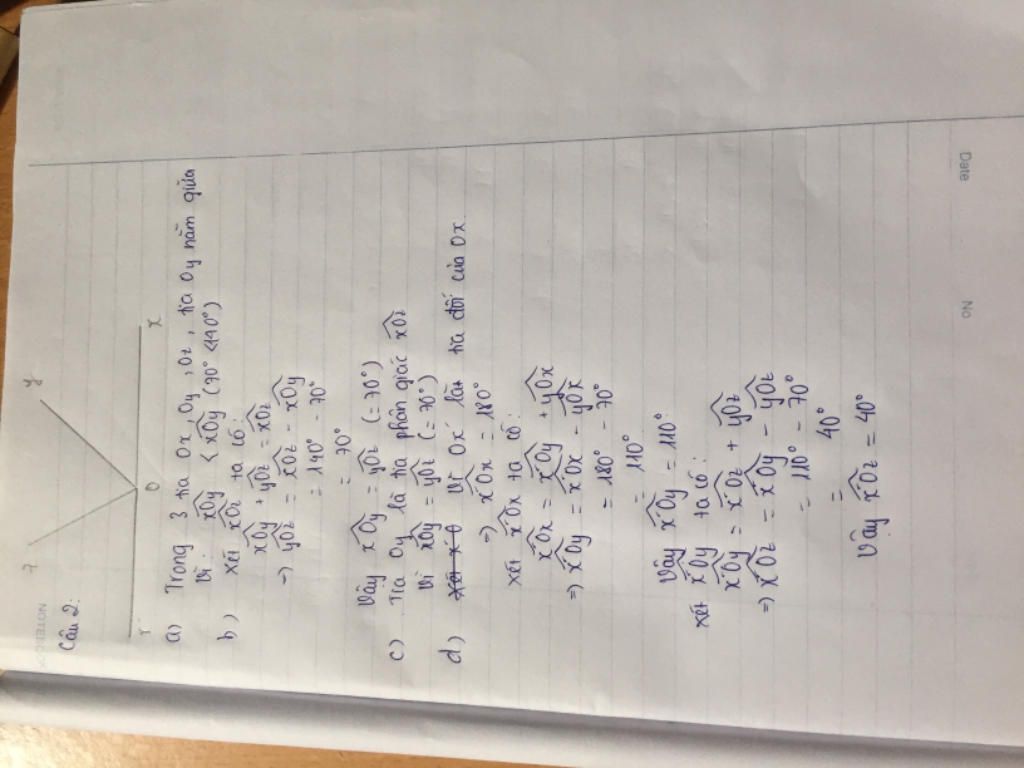 Câu 2:
z
y
x'
O
x
a) Trong 3 tia Ox, Oy, Oz, tia Oy nằm giữa
Vì: xOy < xOy (70° < 140°)
b) Xét xOz ta có:
xOy + yOz = xOz
=> yOz = xOz - xOy
= 140° - 70°
= 70°
Vậy xOy = yOz (= 70°)
c) Tia Oy là tia phân giác xOz
Vì xOy = yOz (= 70°)
d) Vì Ox' là tia đối của Ox
=> x'Ox = 180°
Xét x'Ox ta có:
x'Ox = x'Oy + yOx
=> x'Oy = x'Ox - yOx
= 180° - 70°
= 110°
Vậy x'Oy = 110°
Xét x'Oy ta có:
x'Oy = x'Oz + yOz
=> x'Oz = x'Oy - yOz
= 110° - 70°
= 40°
Vậy x'Oz = 40°
No
Date